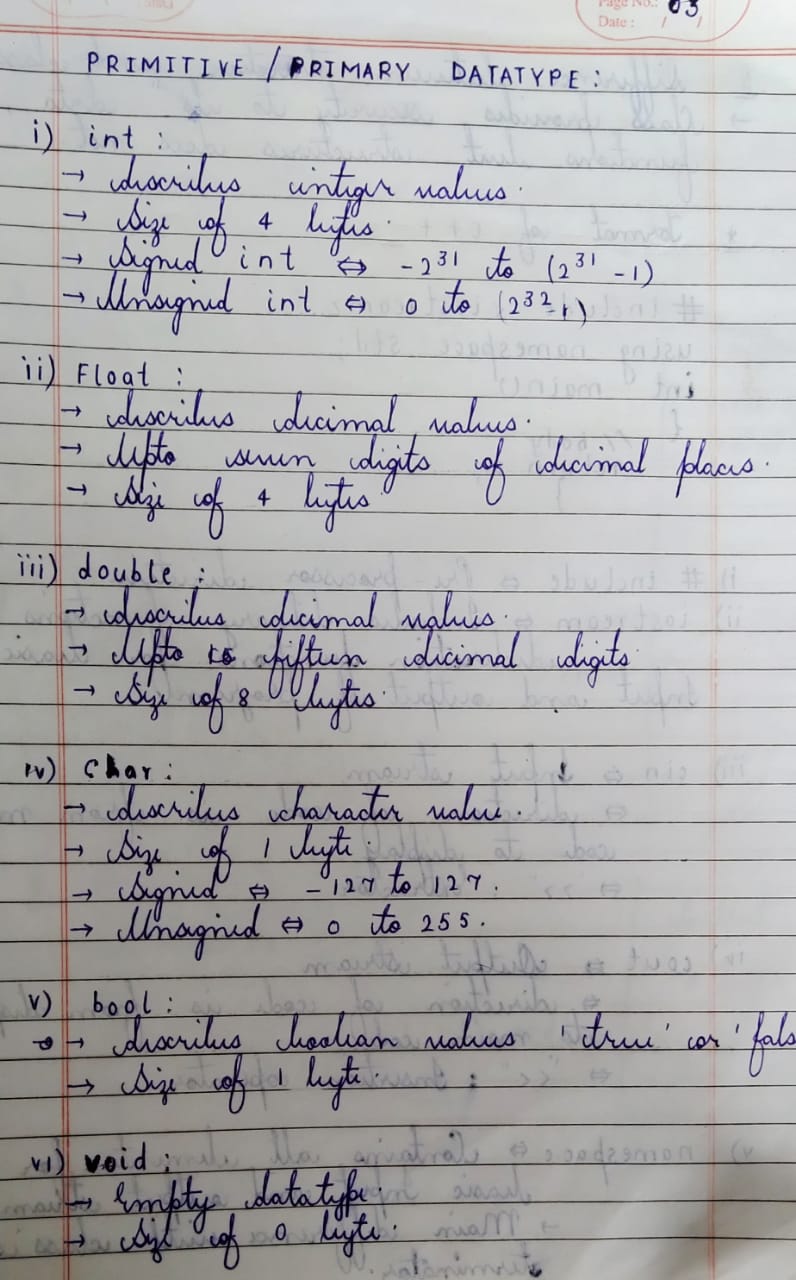 Page No.: 03
Date: / /
PRIMITIVE / PRIMARY DATATYPE:
i) int :
→ describes integer values.
→ Size of 4 bytes.
→ Signed int ⇔ -2³¹ to (2³¹ -1)
→ Unsigned int ⇔ 0 to (2³²-1)
ii) Float :
→ describes decimal values.
→ Upto seven digits of decimal places.
→ Size of 4 bytes.
iii) double :
→ describes decimal values.
→ Upto fifteen decimal digits
→ Size of 8 bytes.
iv) Char :
→ describes character value.
→ Size of 1 byte.
→ Signed ⇔ -127 to 127.
→ Unsigned ⇔ 0 to 255.
v) bool :
→ describes boolean values 'true' or 'fals
→ Size of 1 byte.
vi) void :
→ Empty datatype.
→ Size of 0 byte.